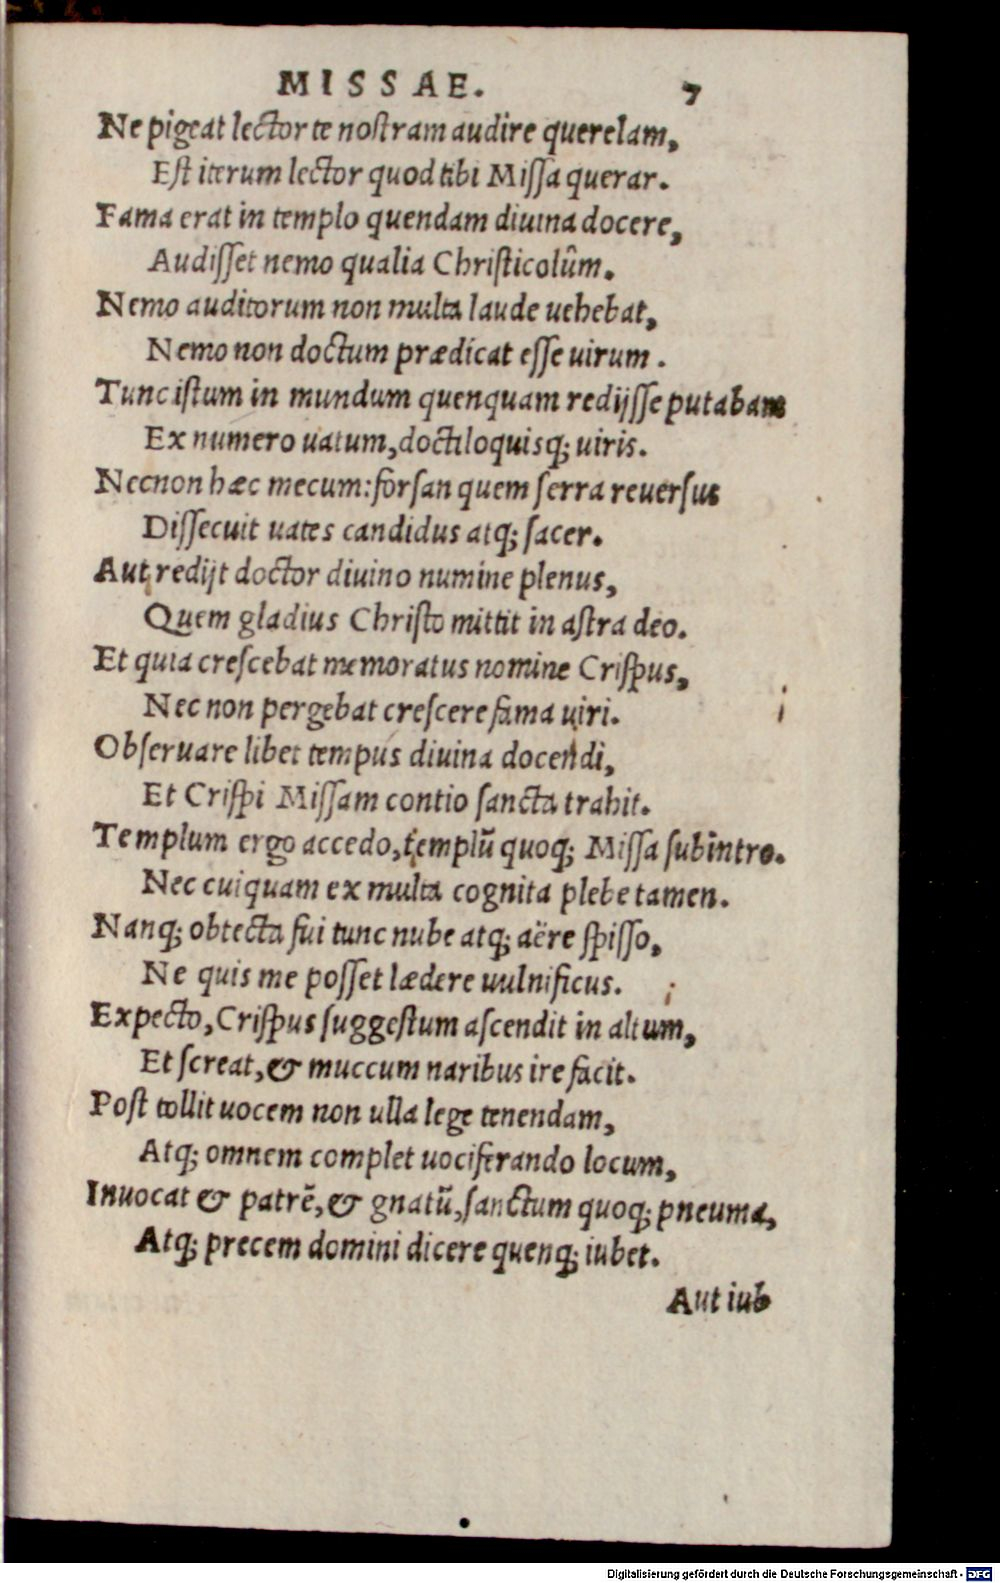 MISSAE. 7
Ne pigeat lector te nostram audire querelam,
Est iterum lector quod tibi Missa querar.
Fama erat in templo quendam diuina docere,
Audisset nemo qualia Christicolûm.
Nemo auditorum non multa laude uehebat,
Nemo non doctum prædicat esse uirum.
Tunc istum in mundum quenquam redijsse putabam
Ex numero uatum, doctiloquisq; uiris.
Necnon hæc mecum: forsan quem serra reuersus
Dissecuit uates candidus atq; sacer.
Aut redijt doctor diuino numine plenus,
Quem gladius Christo mittit in astra deo.
Et quia crescebat memoratus nomine Crispus,
Nec non pergebat crescere fama uiri.
Obseruare libet tempus diuina docendi,
Et Crispi Missam contio sancta trahit.
Templum ergo accedo, templū quoq; Missa subintro.
Nec cuiquam ex multa cognita plebe tamen.
Nanq; obtecta fui tunc nube atq; aëre spisso,
Ne quis me posset lædere uulnificus.
Expecto, Crispus suggestum ascendit in altum,
Et screat, & muccum naribus ire facit.
Post tollit uocem non ulla lege tenendam,
Atq; omnem complet uociferando locum,
Inuocat & patrē, & gnatū, sanctum quoq; pneuma,
Atq; precem domini dicere quenq; iubet.
Aut iub
Digitalisierung gefördert durch die Deutsche Forschungsgemeinschaft - DFG